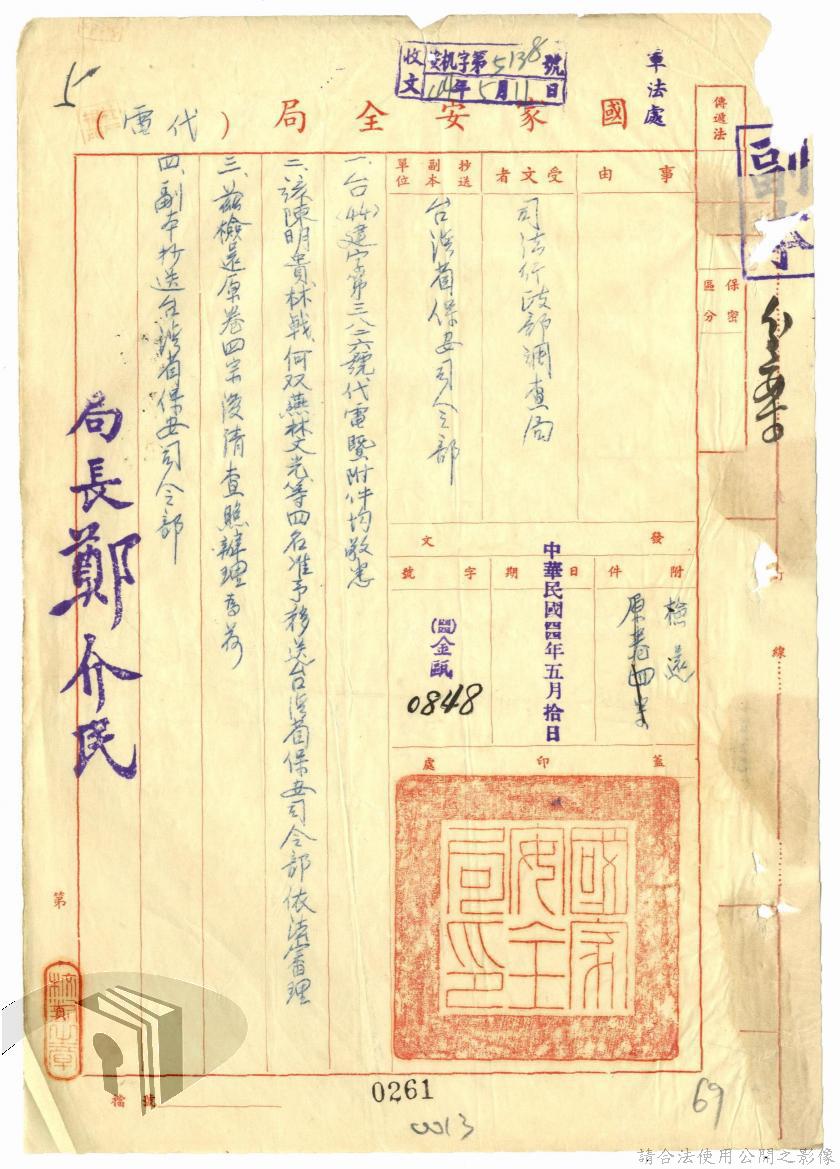 副本
軍法處
收文 安机字第5138號
44年5月11日
國家安全局(代電)
傳遞法
保密區分
事由
受文者
司法行政部調查局
抄送副本單位
台湾省保安司令部
發文
附件
檢還
原卷四宗
日期
中華民國四四年五月拾日
字號
金甌
0848
蓋印處
國家安全局印
一、台(44)建字第三八二六號代電暨附件均敬悉
二、該陳明貴林戰何双燕林文光等四名准予移送台湾省保安司令部依法審理
三、茲檢還原卷四宗復請查照辦理為荷
四、副本抄送台湾省保安司令部
局長鄭介民
5
訂
線
第
檔號
0261
0013
69
請合法使用公開之影像